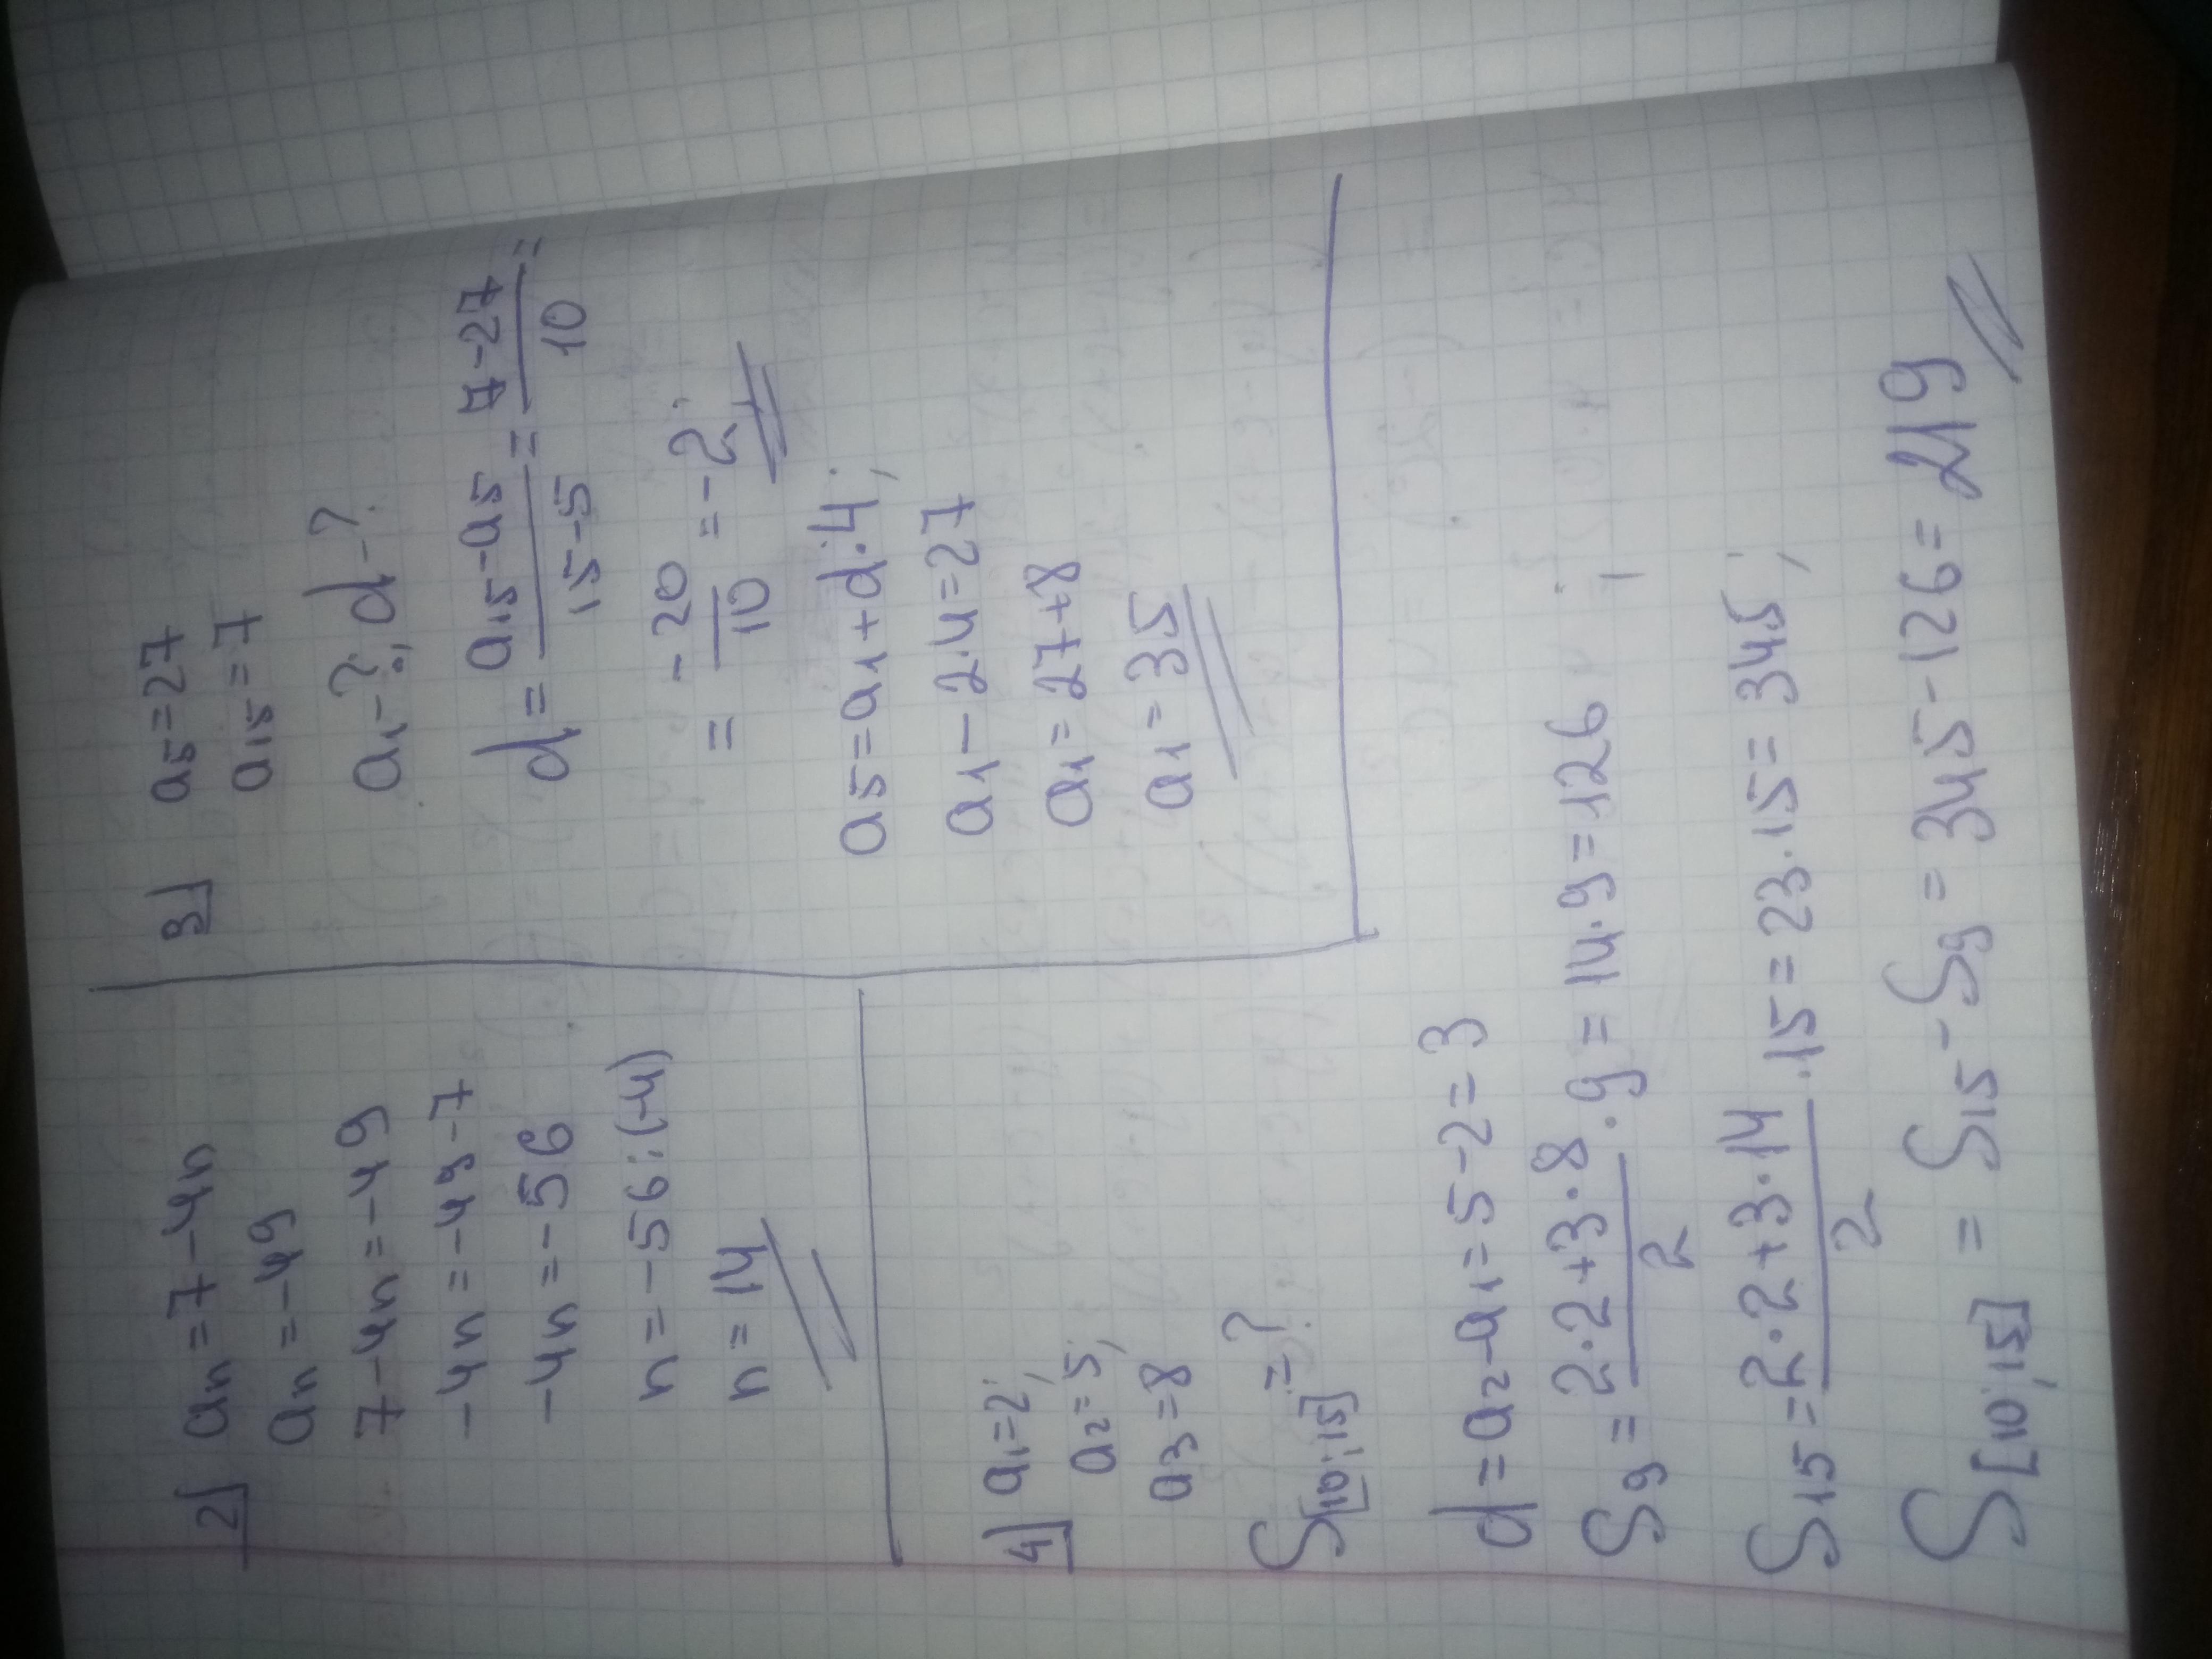 2) an = 7 - 4n
an = -49
7 - 4n = -49
-4n = -49 - 7
-4n = -56
n = -56 : (-4)
n = 14
3) a5 = 27
a15 = 7
a1 - ?; d - ?
d = (a15 - a5)/(15 - 5) = (7 - 27)/10 =
= -20/10 = -2;
a5 = a1 + d · 4;
a1 - 2 · 4 = 27
a1 = 27 + 8
a1 = 35
4) a1 = 2;
a2 = 5;
a3 = 8
S[10;15] = ?
d = a2 - a1 = 5 - 2 = 3
S9 = (2 · 2 + 3 · 8)/2 · 9 = 14 · 9 = 126;
S15 = (2 · 2 + 3 · 14)/2 · 15 = 23 · 15 = 345;
S[10;15] = S15 - S9 = 345 - 126 = 219